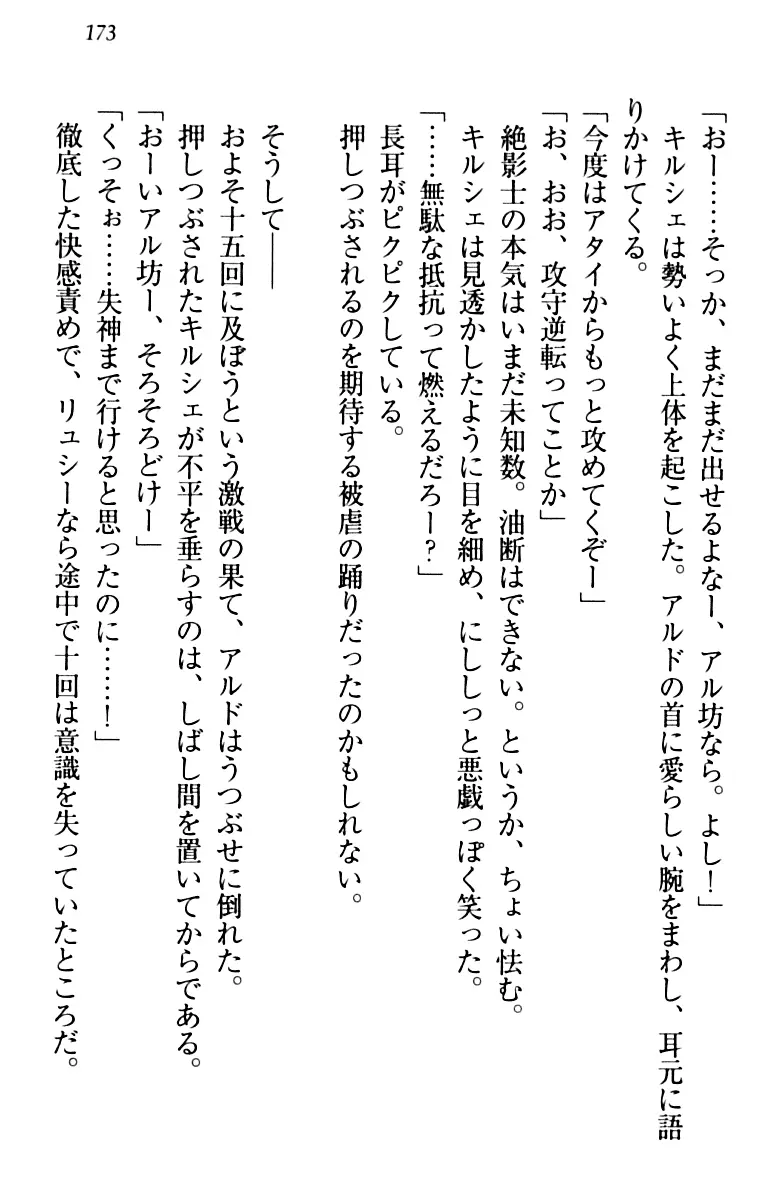 173
「おー……そっか、まだまだ出せるよなー、アル坊なら。よし！」
キルシェは勢いよく上体を起こした。アルドの首に愛らしい腕をまわし、耳元に語
りかけてくる。
「今度はアタイからもっと攻めてくぞー」
「お、おお、攻守逆転ってことか」
絶影士の本気はいまだ未知数。油断はできない。というか、ちょい怯む。
キルシェは見透かしたように目を細め、にししっと悪戯っぽく笑った。
「……無駄な抵抗って燃えるだろー？」
長耳がピクピクしている。
押しつぶされるのを期待する被虐の踊りだったのかもしれない。
そうして――
およそ十五回に及ぼうという激戦の果て、アルドはうつぶせに倒れた。
押しつぶされたキルシェが不平を垂らすのは、しばし間を置いてからである。
「おーいアル坊ー、そろそろどけー」
「くっそぉ……失神まで行けると思ったのに……！」
徹底した快感責めで、リュシーなら途中で十回は意識を失っていたところだ。